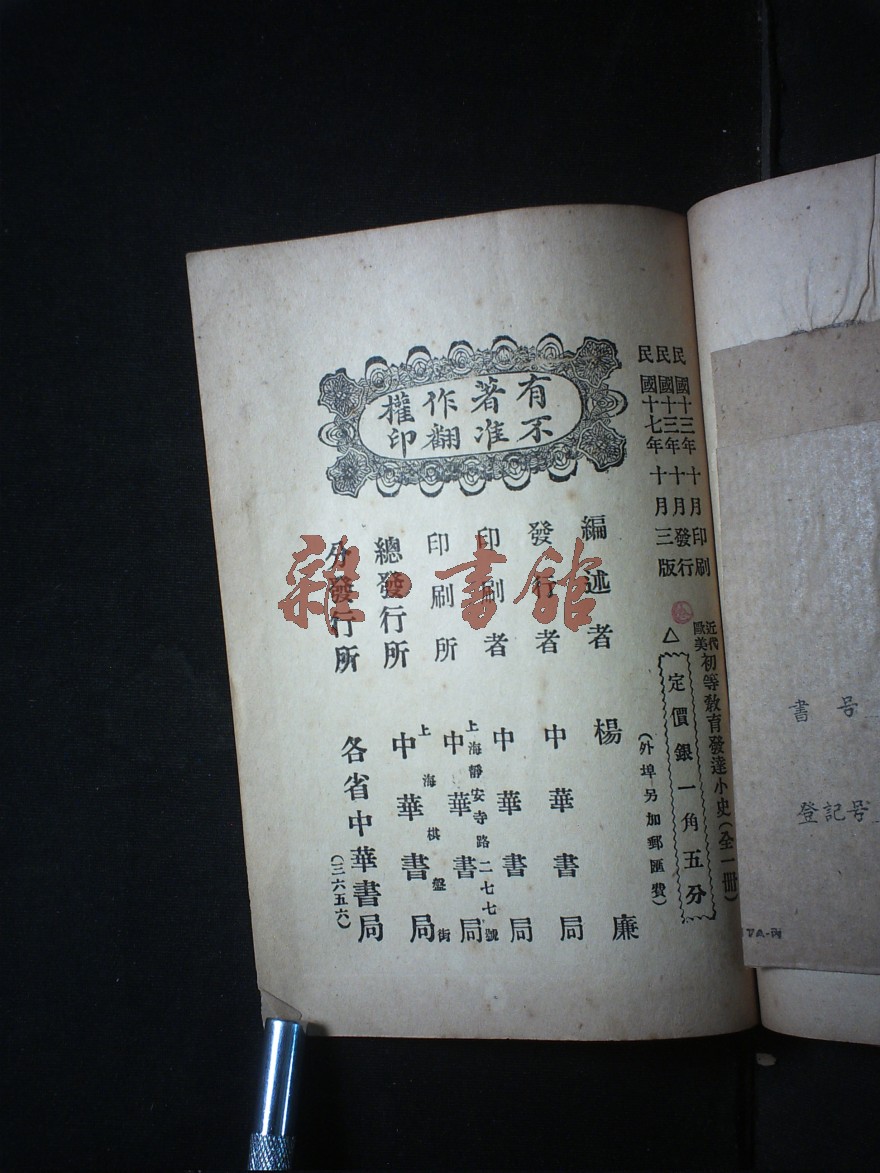 民國十三年十月印刷
民國十三年十月發行
民國十七年十月三版
近代歐美初等教育發達小史(全一冊)
△定價銀一角五分
(外埠另加郵匯費)
有著作權
不准翻印
編述者 楊廉
發行者 中華書局
印刷者 中華書局
印刷所 上海靜安寺路二七七號 中華書局
總發行所 上海棋盤街 中華書局
分發行所 各省中華書局
(三六五六)
雜·書館
書号
登記号